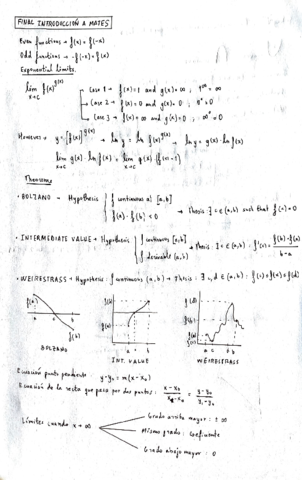 FINAL INTRODUCCIÓN A MATES
Even functions → f(x) = f(-x)
Odd functions → -f(-x) = f(x)
Exponential limits.
lim f(x)^g(x)
x→c
Case 1 → f(x)=1 and g(x)=∞ ; 1^∞ = ∞
Case 2 → f(x)=0 and g(x)=0 ; 0^0 = 0
Case 3 → f(x)=∞ and g(x)=0 ; ∞^0 = 0
However → y = [f(x)]^g(x) → ln y = ln f(x)^g(x) → ln y = g(x) · ln f(x)
lim g(x) · ln f(x) = lim g(x) · (f(x)-1)
x→c x→c
Theorems
· BOLZANO → Hypothesis
f continuous at [a,b]
f(a) · f(b) < 0
→ Thesis: ∃ c ∈ (a,b) such that f(c) = 0
· INTERMEDIATE VALUE → Hypothesis
f continuous [a,b]
f derivable (a,b)
→ Thesis: ∃ c ∈ (a,b) : f'(c) = f(b)-f(a) / b-a
· WEIRESTRASS → Hypothesis: f continuous (a,b) → Thesis: ∃ c, d ∈ (a,b) : f(c) ≤ f(x) ≤ f(d)
f(a)
a c b
f(b)
BOLZANO
f(b)
f(a)
a b
INT. VALUE
f(d)
f(b)
f(a)
f(c)
a c d b
WEIRDSTRASS
Ecuación punto pendiente: y-y₀ = m(x-x₀)
Ecuación de la recta que pasa por dos puntos: x-x₀ / x₁-x₀ = y-y₀ / y₁-y₀
Límites cuando x → ∞
Grado arriba mayor: ± ∞
Mismo grado: coeficiente
Grado abajo mayor: 0